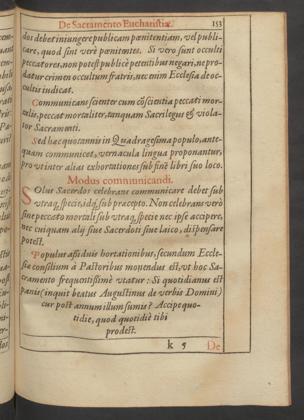 De Sacramento Eucharistiæ. 153
dos debet iniungere publicam pœnitentiam, vel publi-
care, quod sint verè pœnitentes. Si vero sunt occulti
peccatores, non potest publicè petentibus negari, ne pro-
datur crimen occultum fratris, nec enim Ecclesia de oc-
cultis iudicat.
Communicans scienter cum cõscientia peccati mor-
talis, peccat mortaliter, tanquam Sacrilegus & viola-
tor Sacramenti.
Sed hæc quotannis in Quadragesima populo, ante-
quam communicet, vernacula lingua proponantur,
prout inter alias exhortationes sub finẽ libri suo loco.
Modus communicandi.
SOlus Sacerdos celebrans communicare debet sub
vtraq́; specie, idq́; sub præcepto. Non celebrans verò
sine peccato mortali sub vtraq́; specie nec ipse accipere,
nec cuiquam alij siue Sacerdoti siue laico, dispensare
potest.
Populus assiduis hortationibus, secundum Eccle-
siæ consilium à Pastoribus monendus est, vt hoc Sa-
cramento frequentissimè vtatur: Si quotidianus est
panis (inquit beatus Augustinus de verbis Domini)
cur post annum illum sumis? Accipe quo-
tidie, quod quotidiè tibi
prodest.
k 5 De